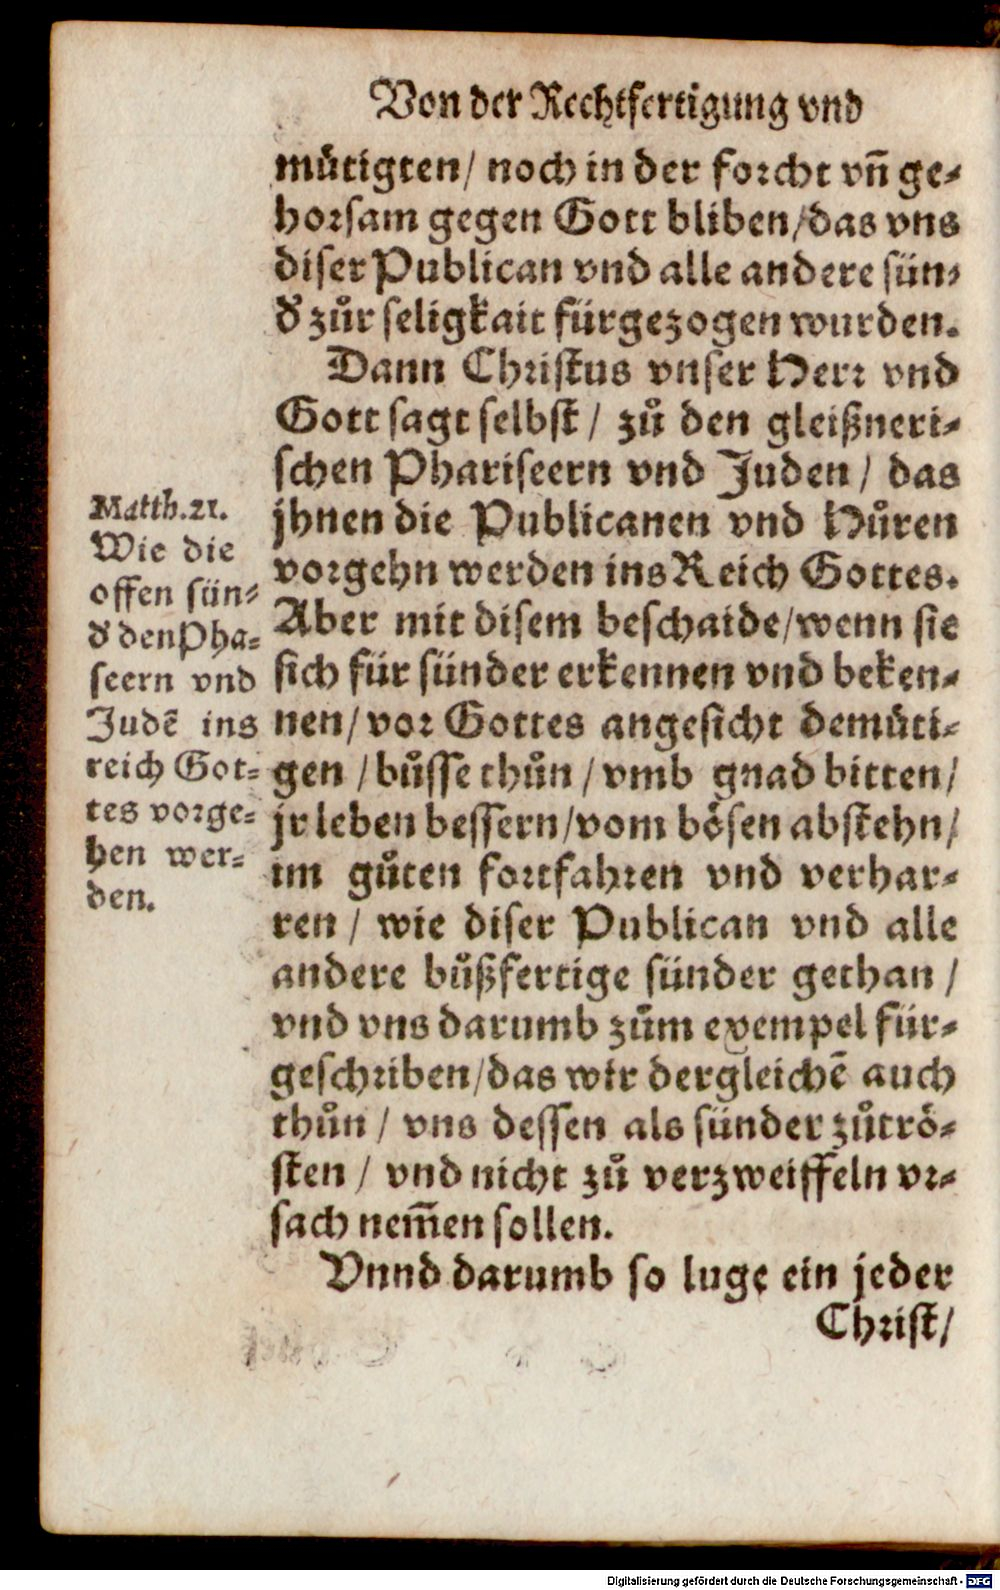 Von der Rechtfertigung vnd
mütigten/ noch in der forcht vñ ge-
horsam gegen Gott bliben/das vns
diser Publican vnd alle andere sün-
d' zůr seligkait fürgezogen wurden.
Dann Christus vnser Herr vnd
Gott sagt selbst / zů den gleißneri-
schen Phariseern vnd Juden / das
jhnen die Publicanen vnd Hůren
vorgehn werden ins Reich Gottes.
Aber mit disem beschaide/wenn sie
sich für sünder erkennen vnd beken-
nen/ vor Gottes angesicht demüti-
gen / bůsse thůn / vmb gnad bitten/
jr leben bessern/vom bösen abstehn/
im gůten fortfahren vnd verhar-
ren / wie diser Publican vnd alle
andere bůßfertige sünder gethan /
vnd vns darumb zům exempel für-
geschriben/das wir dergleichē auch
thůn / vns dessen als sünder zůtrö-
sten / vnd nicht zů verzweiffeln vr-
sach nem̃en sollen.
Vnnd darumb so luge ein jeder
Christ/
Matth.21.
Wie die
offen sün-
d' den Pha-
seern vnd
Judē ins
reich Got-
tes vorge-
hen wer-
den.
Digitalisierung gefördert durch die Deutsche Forschungsgemeinschaft - DFG